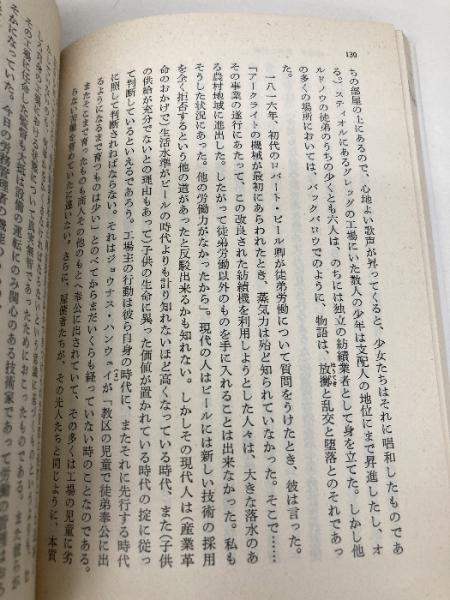 130
ちの部屋の上にあるので、心地よい歌声が昇ってくると、少女たちはそれに唱和したものであ
る。」スティオルにあるグレッグの工場にいた数人の少年は支配人の地位にまで昇進したし、オ
ルドノウの徒弟のうちの少くとも六人は、のちには独立の紡績業者として身を立てた。しかし他
の多くの場所においては、バックバロウでのように、物語は、放擲と乱交と堕落とのそれであっ
た。
一八一六年、初代のロバート・ピール卿が徒弟労働について質問をうけたとき、彼は言った。
「アークライトの機械が最初にあらわれたとき、蒸気力は殆ど知られていなかった。そこで……
その事業の遂行にあたって、この改良された紡績機を利用しようとした人々は、大きな落水のあ
る農村地域に進出した。したがって徒弟労働以外のものを手に入れることは出来なかった。私も
そうした状況にあった。他の労働力がなかったから」。現代の人はピールには新しい技術の採用
を全く拒否するという他の道があったと反駁出来るかも知れない。しかしその現代人は(産業革
命のおかげで)生活水準がピールの時代よりも計り知れないほど高くなっている時代、また(子供
の供給が充分でないとの理由もあって)子供の生命に異った価値が置かれている時代の掟に従っ
て判断しているといえるであろう。工場主の行動は彼ら自身の時代に、またそれに先行する時代
に照して判断されねばならない。それはジョウナス・ハンウェイが「教区の児童で徒弟奉公に出
るようになるまで育つものは少い」とのべてからまだいくらも経っていない時のことなのである。
またそこまで育ったものも商人その他のもとへ奉公に出されていて、その多くは工場の児童に劣
らない苦痛を嘗めていたに違いない。さらに、雇傭者たちが、その先人たちと同じように、本質
その工場に任命した監督も大抵は設備の運転にのみ関心のある技術家であって労働の
そかになっていた。今日の労務管理者の職能の